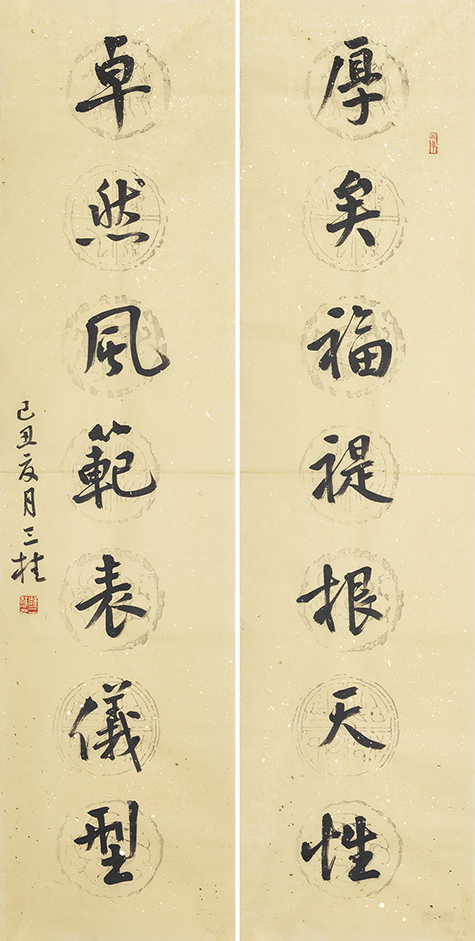 厚矣福禔根天性
卓然風範表儀型
己丑夏月三桂